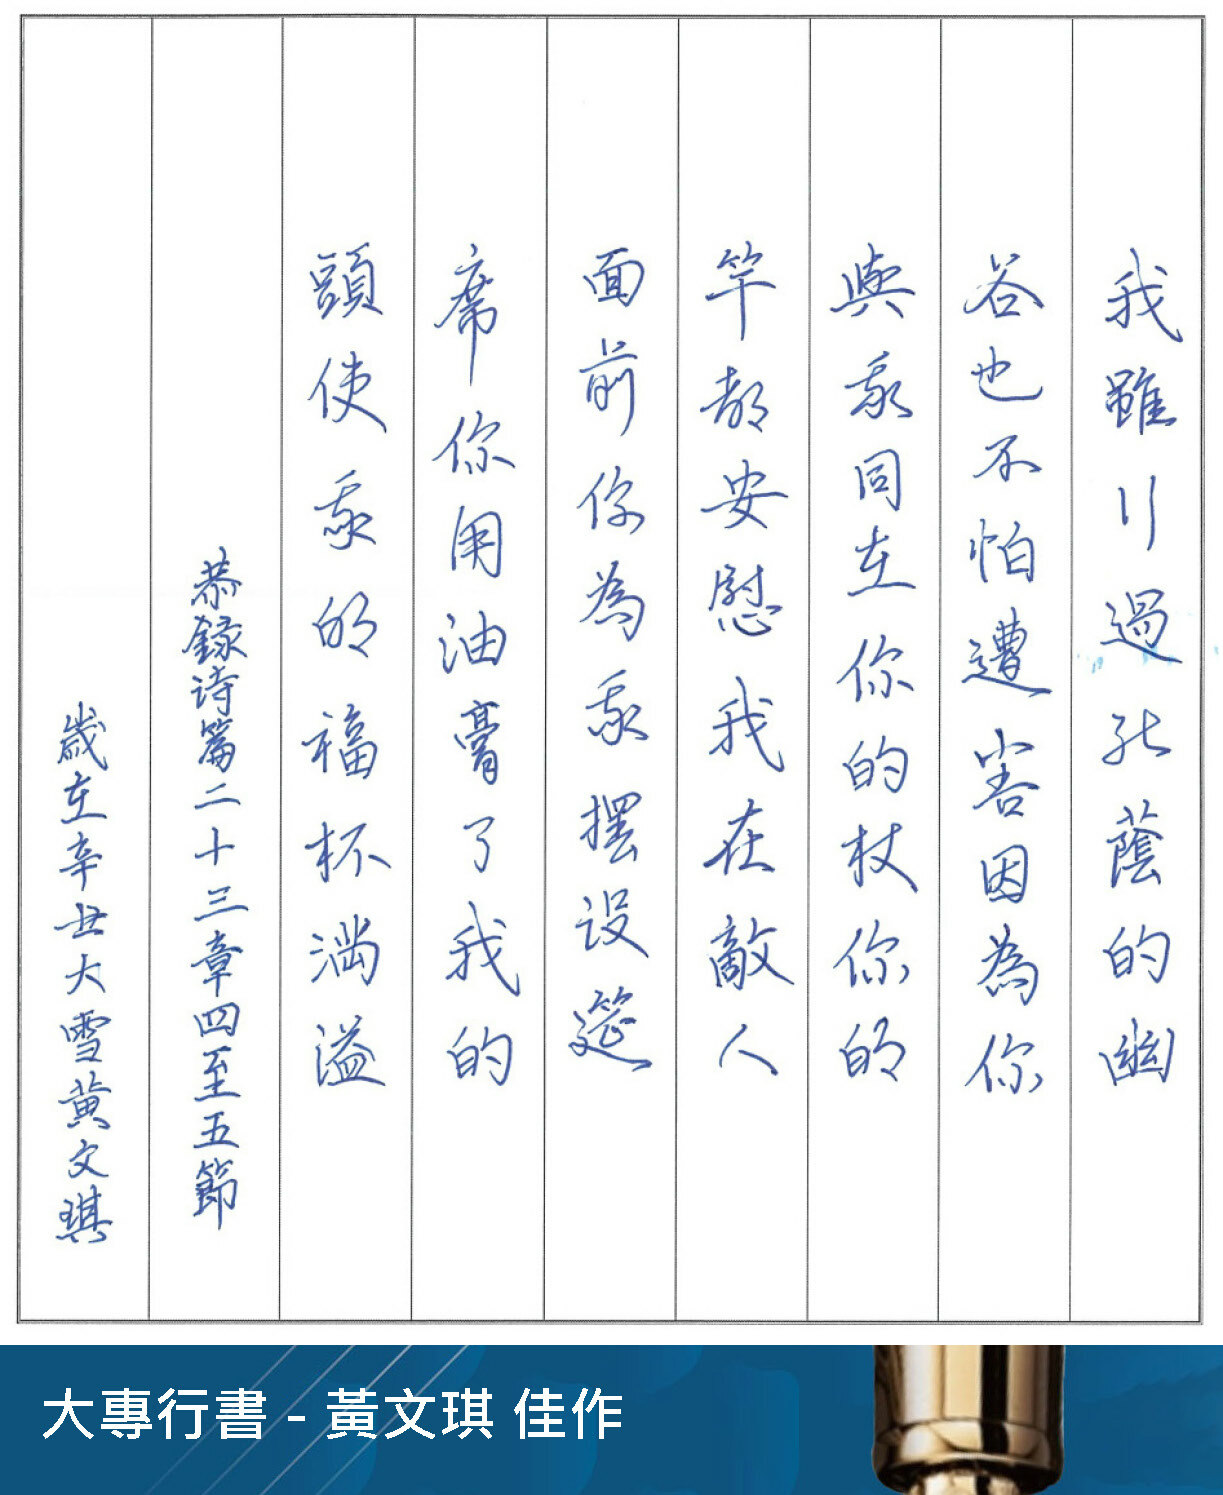 我雖行過死蔭的幽
谷也不怕遭害因為你
與我同在你的杖你的
竿都安慰我在敵人
面前你為我擺设筵
席你用油膏了我的
頭使我的福杯满溢
恭録诗篇二十三章四至五節
歲在辛丑大雪黃文琪
大專行書 - 黃文琪 佳作